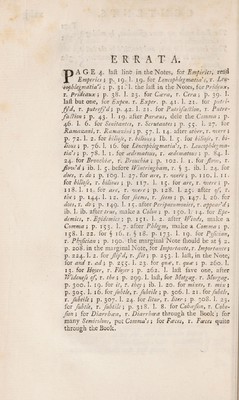 ERRATA.
PAGE 4. last line in the Notes, for Empiries, read
Empiries; p. 19. l. 19. for Leucophlegmatic's, r. Leu-
cophlegmatia's; p. 31. l. the last in the Notes, for Prideux,
r. Prideaux; p. 38. l. 23. for Cæra, r. Cera; p. 39. l.
last but one, for Expen. r. Exper. p. 41. l. 21. for putri-
fy'd, r. putrefy'd; p. 42. l. 21. for Putrifaction, r. Putre-
faction; p. 43. l. 19. after Porous, dele the Comma; p.
46. l. 6. for Scutants, r. Scrutants; p. 55. l. 27. for
Ramazani, r. Ramazini; p. 57. l. 14. after other, r. were;
p. 72. l. 2. for bilious, r. bilious; ib. l. 5. for biliofe, r. bi-
liose; p. 76. l. 16. for Leucophlegmatia's, r. Leucophlegma-
tia's; p. 78. l. 1. for œdematous, r. œdematous; p. 84. l.
24. for Bronchiæ, r. Bronchia; p. 102. l. 1. for
shou'd; ib. l. 5. before Wintringham, r. § 3. ib. l. 24. for
does, r. do; p. 109. l. 27. for are, r. were; p. 110. l. 11.
for biliofe, r. biliose; p. 117. l. 15. for are, r. were; p.
118. l. 11. for are, r. were; p. 128. l. 23. after of, r.
the; p. 144. l. 12. for seems, r. seem; p. 147. l. 26. for
does, r. do; p. 149. l. 11. after Peripneumonic, r. appear'd;
ib. l. ib. after true, make a Colon; p. 150. l. 14. for Epe-
demics, r. Epidemics; p. 151. l. 2. after Winds, make a
Comma; p. 153. l. 7. after Phlegm, make a Comma; p.
158. l. 22. for § 16. r. § 18. p. 173. l. 19. for Pysician,
r. Physician; p. 190. the marginal Note should be at § 2.
p. 208. in the marginal Note, for Importants, r. Importance;
p. 224. l. 2. for slis'd, r. slit; p. 253. l. last, in the Note,
for and r. ad; p. 255. l. 23. for que, r. quæ; p. 260. l.
15. for Heyer, r. Foyer; p. 262. l. last save one, after
Widenefs of, r. the; p. 299. l. last, for Mutgag. r. Murgag.
p. 300. l. 19. for it, r. they; ib. l. 20. for mixen, r. mix;
p. 305. l. 16. for subtle, r. subtile; p. 306. l. 21. for subtle,
r. subtile; p. 307. l. 24. for litue, r. liter; p. 308. l. 23.
for subtle, r. subtile; p. 318. l. 8. for Cohæsion, r. Cohe-
sion; for Diarrhœa, r. Diarrhœa through the Book; for
many Semicolons, put Comma's; for Fœces, r. Fæces quite
through the Book.